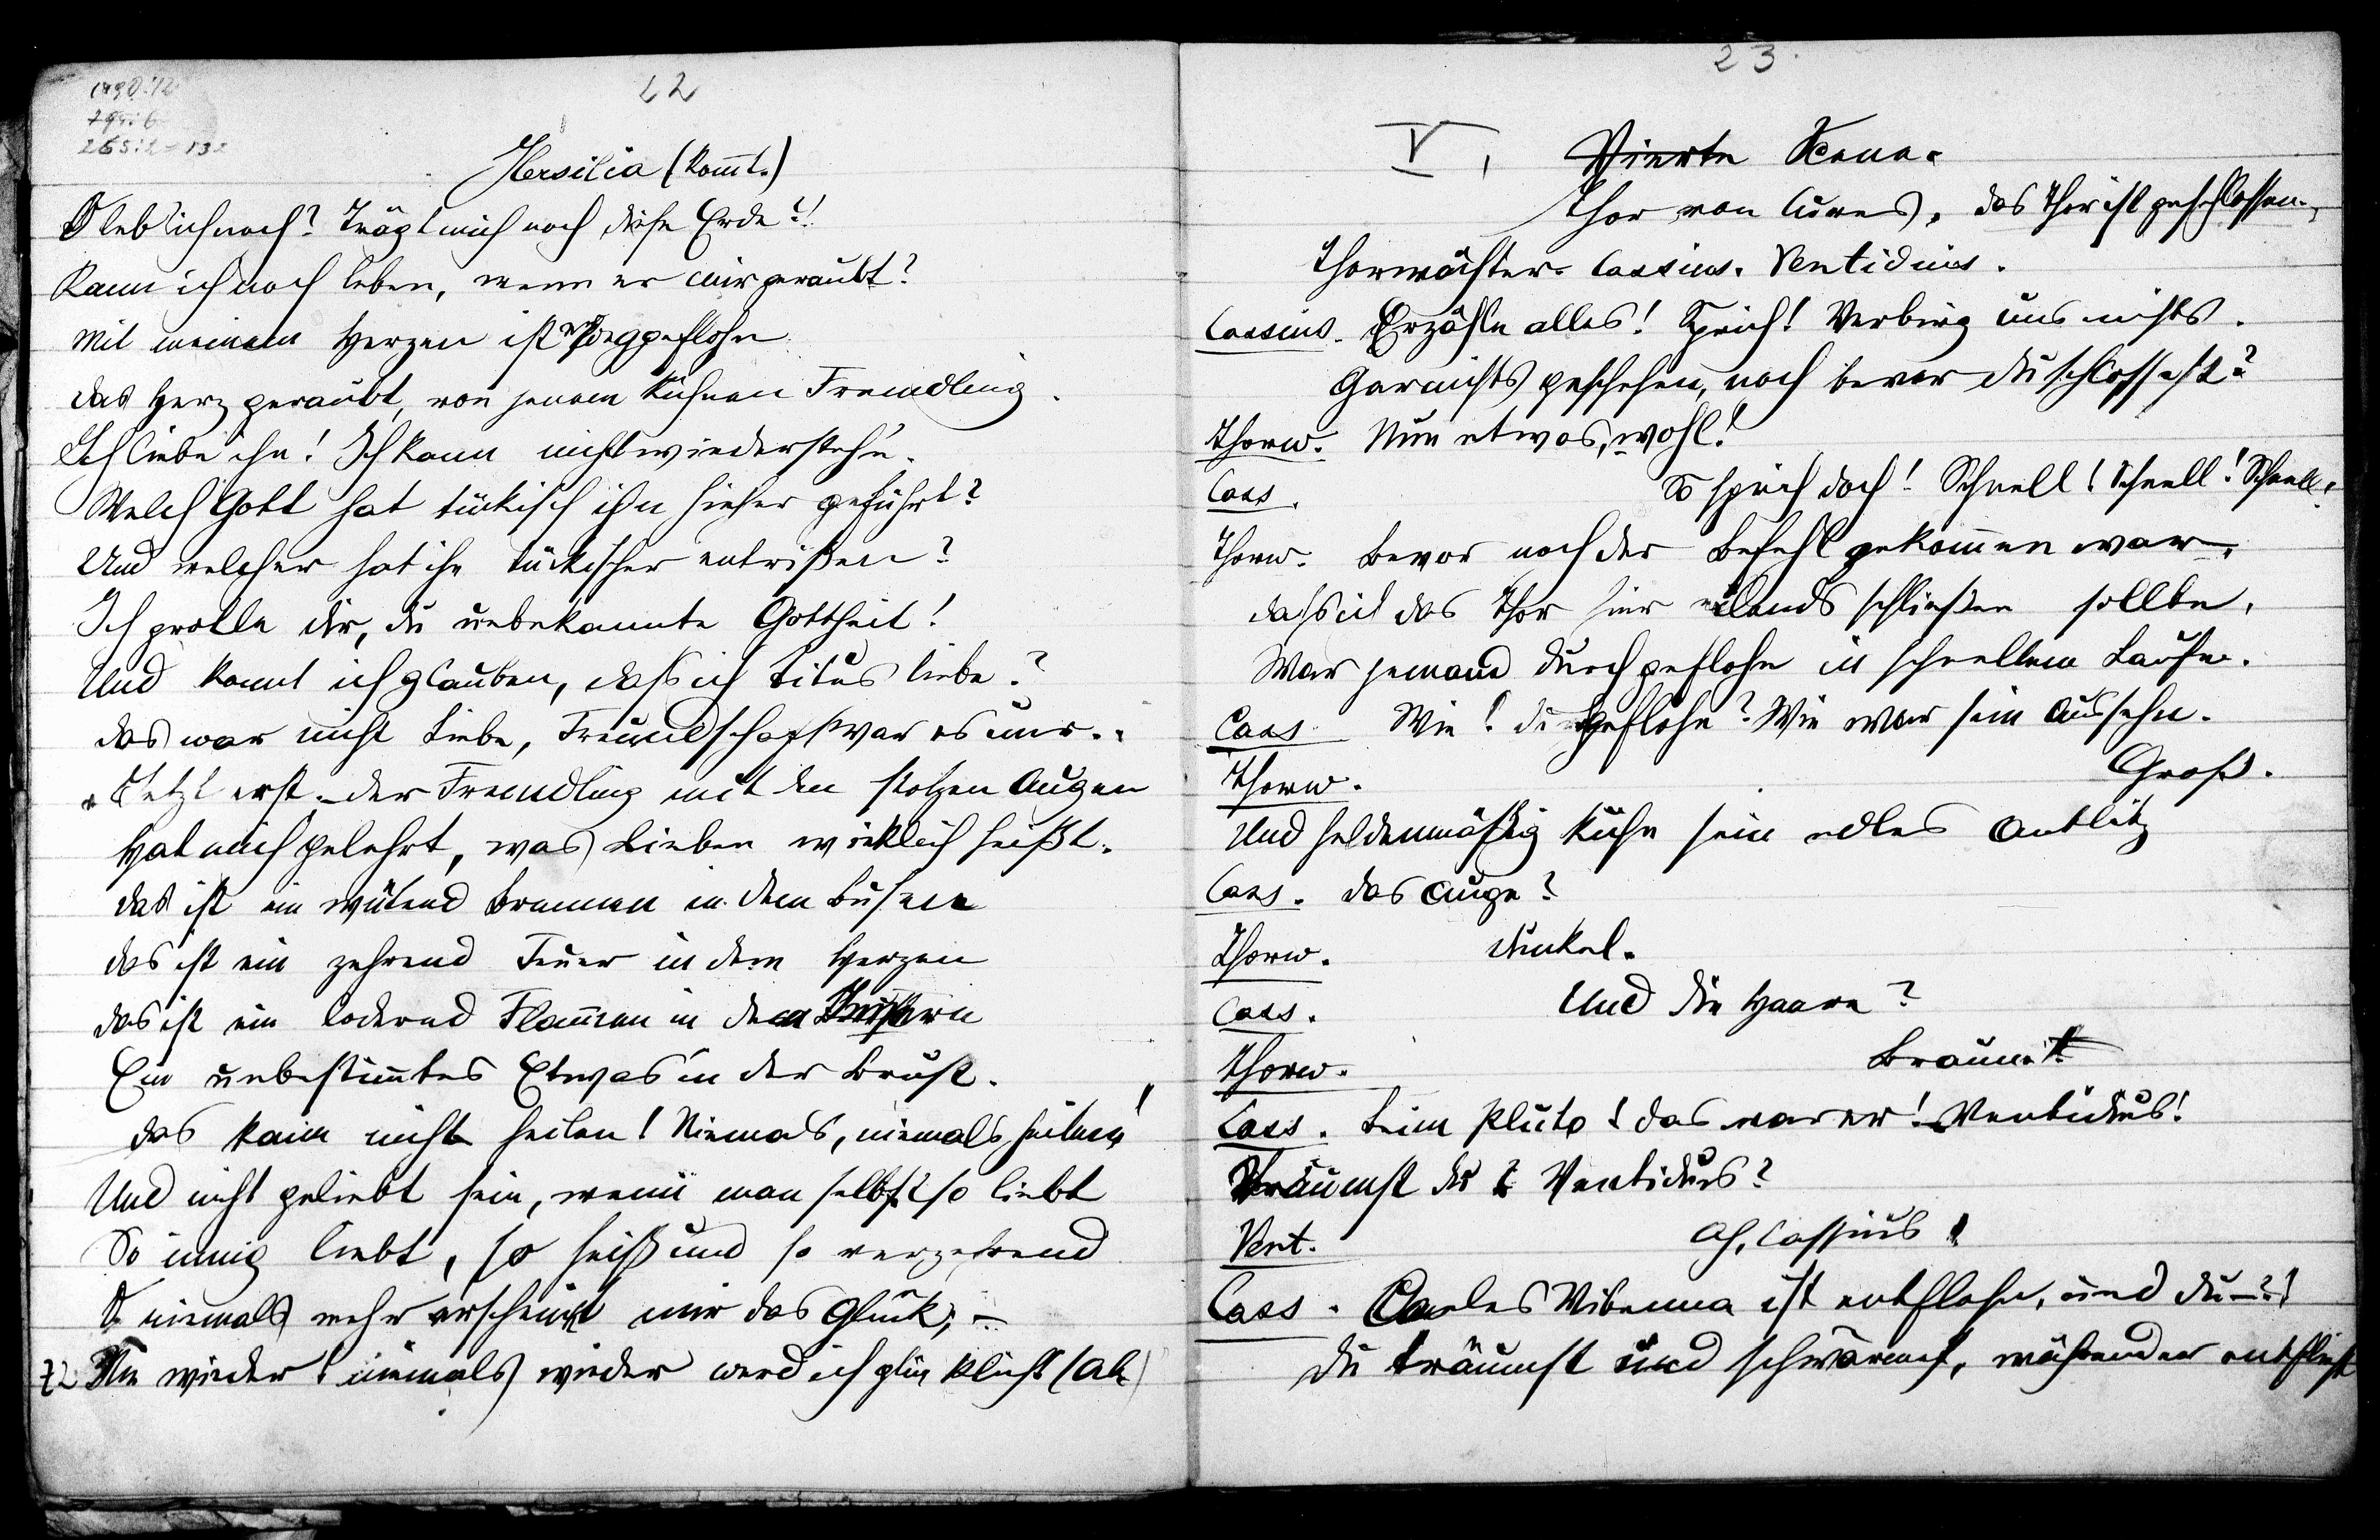 22
Hersilia (kom̄t.)
O leb' ich noch? Trägt mich noch diese Erde?!
Kann ich noch leben, wenn er mir geraubt?
Mit meinem Herzen ist er weggeflohn
Das Herz geraubt, von jenem kühnen Fremdling.
Ich liebe ihn! Ich kann nicht wiederstehn.
Welch Gott hat tückisch ihn hieher geführt?
Und welcher hat ihn tückischer entrißen?
Ich grolle dir, du unbekannte Gottheit!
Und konnt ich glauben, daß ich Titus liebe?
Das war nicht Liebe, Freundschaft war es nur.
Jetzt erst. der Fremdling mit den stolzen Augen
Hat mich gelehrt, was Lieben wirklich heißt.
Das ist ein wütend Brennen in dem Busen
Das ist ein zehrend Feuer in dem Herzen
Das ist ein lodernd Flam̄en in dem
Ein unbestim̄tes Etwas in der Brust.
Das kann nicht heilen! Niemals, niemals heilen!
Und nicht geliebt sein, wenn man selbst so liebt
So innig liebt, so heiß und so verzehrend
O niemals mehr erscheint mir das Glück, –
72 Nie wieder! niemals wieder werd ich glücklich! (Ab.)
23.
V, Vierte Scene.
Thor von Cures. Das Thor ist geschlossen.
Thorwächter. Cassius. Ventidius.
Cassius. Erzähle alles! Sprich! Verbirg uns nichts.
Garnichts geschehen, noch bevor du schlossest?
Thorw. Nun etwas, wohl!
Cass. So sprich doch! Schnell! Schnell! Schnell.
Thorw. Bevor noch der Befehl gekom̄en war,
daß ich das Thor hier eilends schließen sollte,
War jemand durchgeflohn in schnellem Laufe.
Cass. Wie! geflohn? Wie war sein Aussehn.
Thorw. Groß.
Und heldenmäßig kühn sein edles Antlitz
Cass. Das Auge?
Thorw. Dunkel.
Cass. Und die Haare?
Thorw. Braun.
Cass. Beim Pluto! das war er! Ventidius!
Träumst du? Ventidius?
Vent. Ah, Cassius!
Cass. Caeles Vibenna ist entflohn, und du –?!
Du träumst und schwärmst, während er entflieht